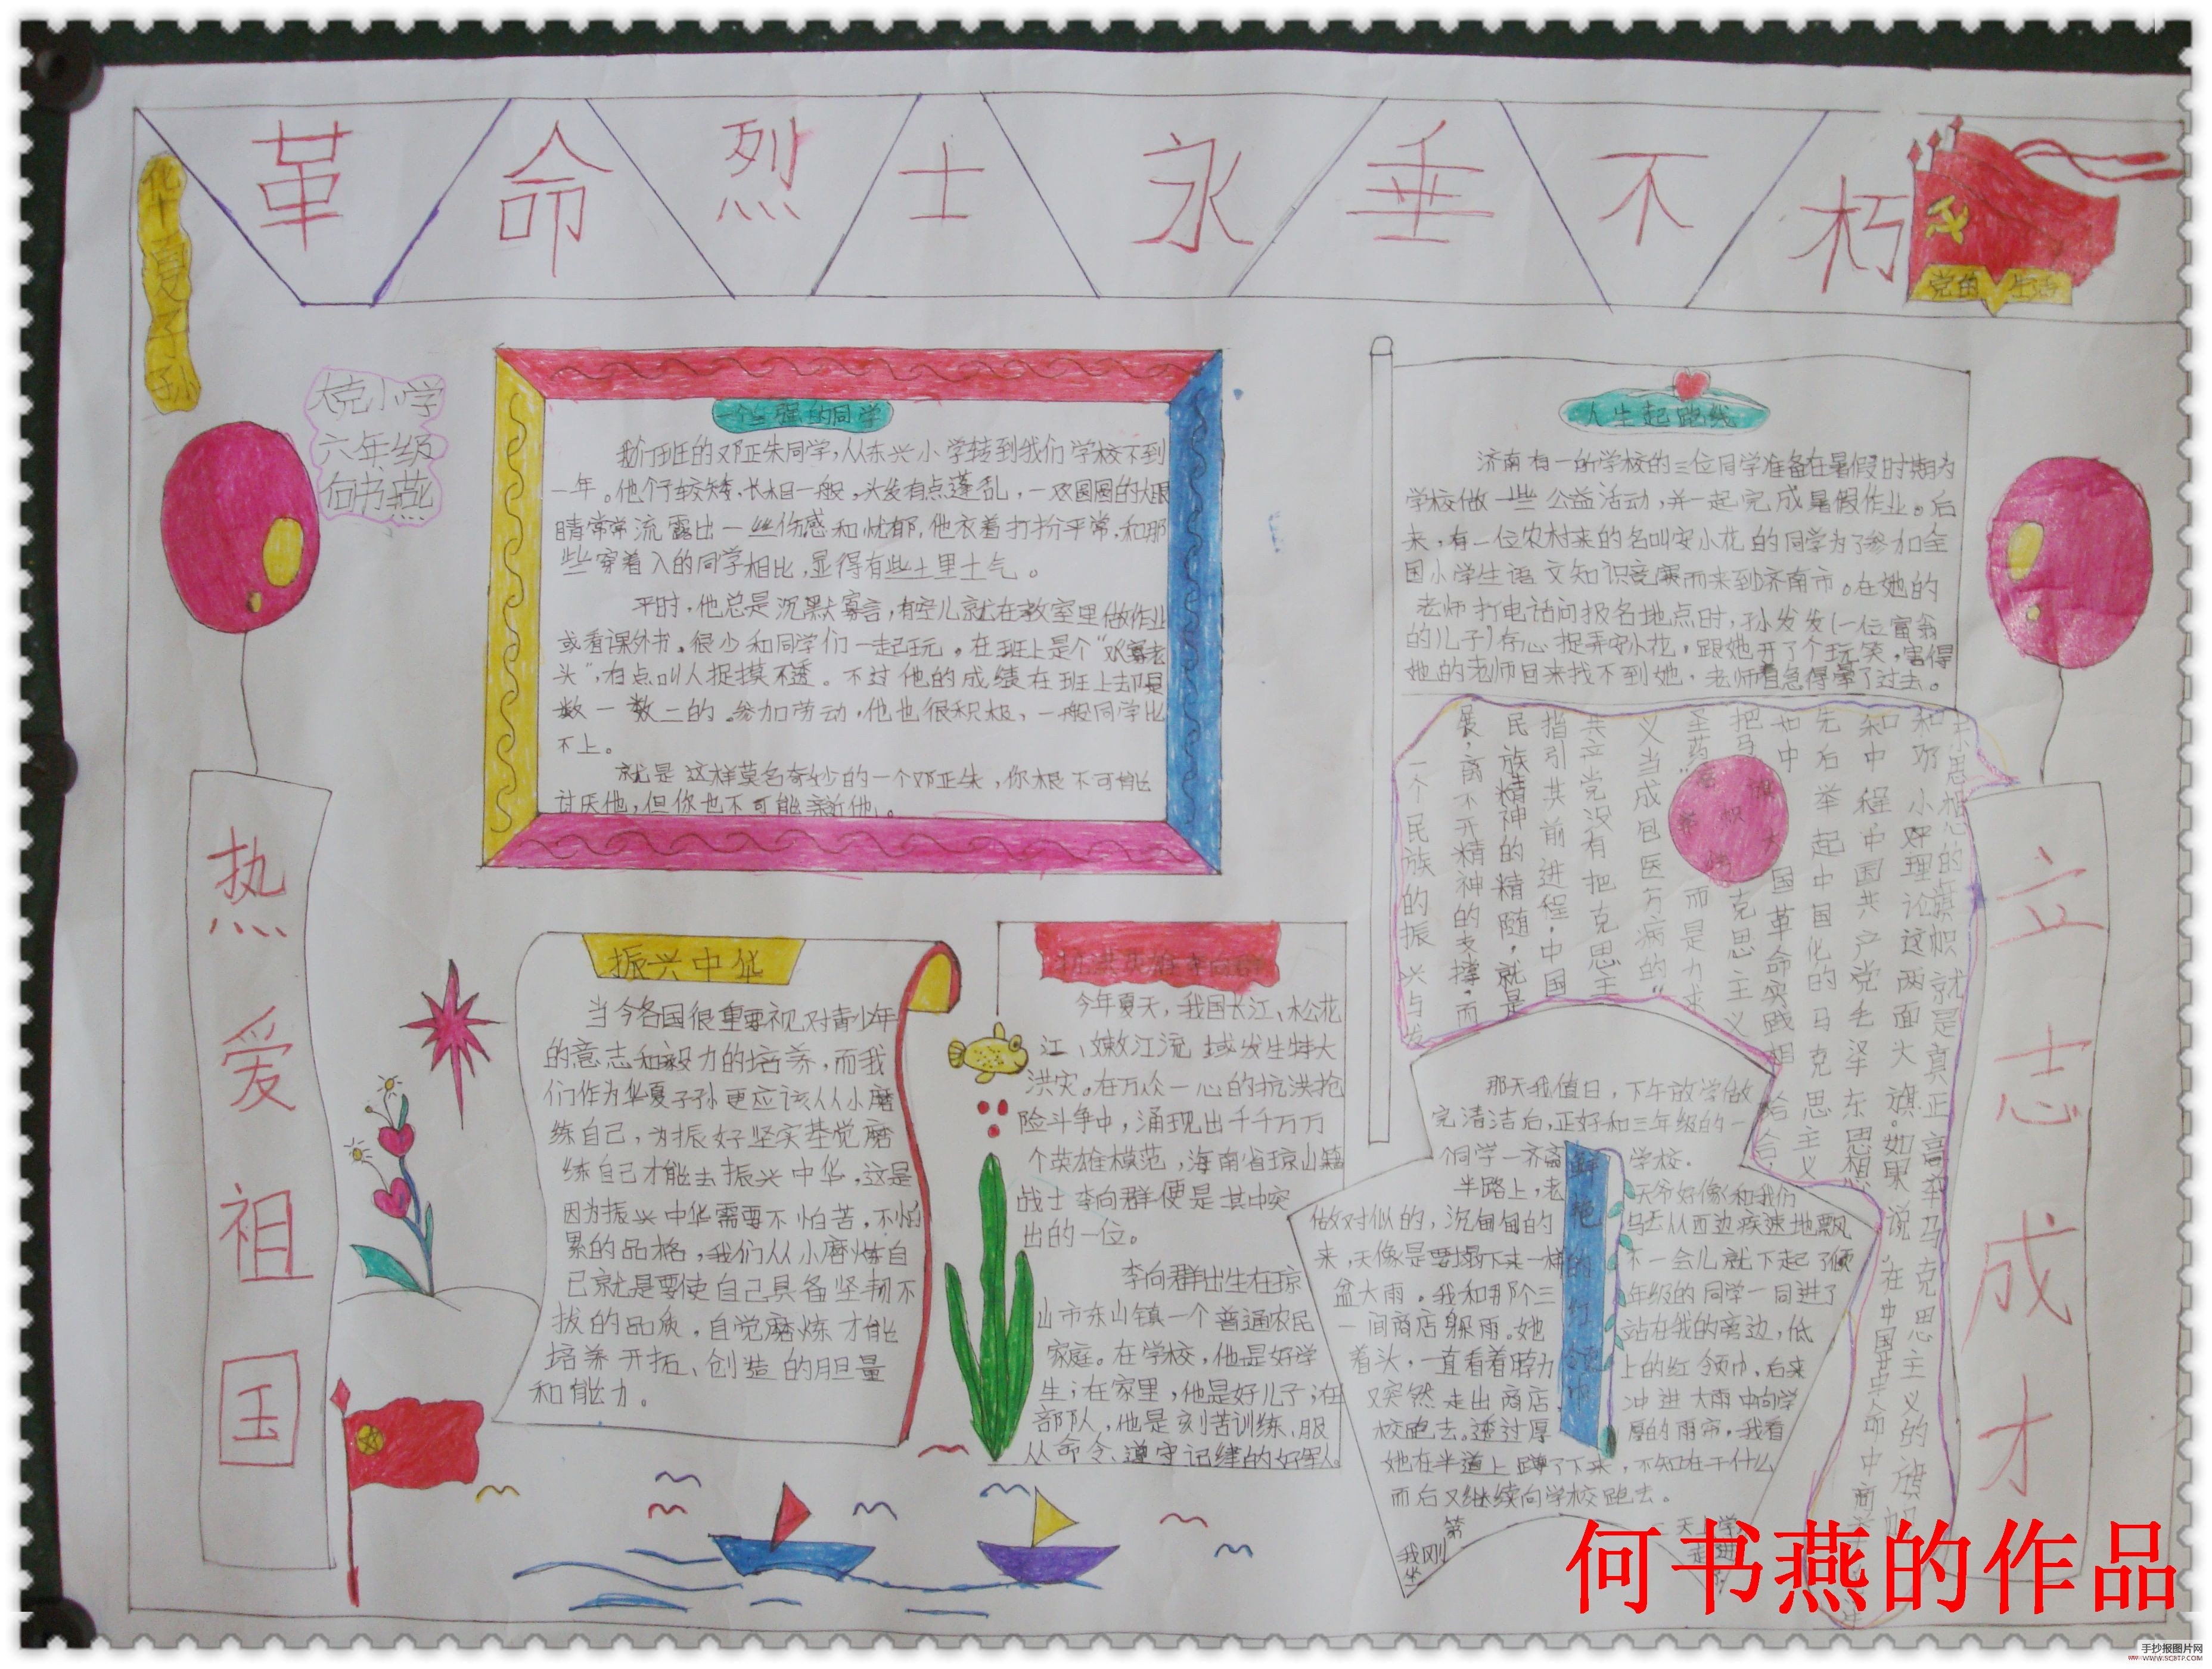 革命烈士永垂不朽
华夏子孙
党的生活
大克小学
六年级
何书燕
热爱祖国
立志成才
一个 强的同学
我们班的邓正朱同学,从东兴小学转到我们学校不到
一年。他个子较矮、长相一般。头发有点蓬乱,一双圆圆的大眼
睛常常流露出一丝伤感和忧郁,他衣着打扮平常,和那
些穿着入的同学相比,显得有些土里土气。
平时,他总是沉默寡言,有空儿就在教室里做作业
或看课外书。很少和同学们一起玩。在班上是个“ 寡老
头”,有点叫人捉摸不透。不过他的成绩在班上却是
数一数二的。参加劳动,他也很积极,一般同学比
不上。
就是这样莫名奇妙的一个邓正朱,你根不可能
讨厌他,但你也不可能亲近他。
人生起跑线
济南有一所学校的三位同学准备在暑假时期为
学校做一些公益活动,并一起完成暑假作业。后
来,有一位农村来的名叫安小花的同学为了参加全
国小学生语文知识竞赛而来到济南市。在她的
老师打电话问报名地点时,孙发发(一位富翁
的儿子)存心捉弄安小花,跟她开了个玩笑,害得
她的老师回来找不到她,老师着急得晕了过去。
东思想的旗帜就是真正高举马克思主义的旗帜
和邓小平理论这两面大旗。如果说“在中国革命中
和中程中国共产党毛泽东思想
先后举起中国化的马克思主义
如中 国革命实践相结合,
把马 克思主义
圣药 而是力求
义当成包医万病的“
共产党没有把克思主
指引共前进程,中国
民族精神的精随,就是
展,离不开精神的支撑,而
一个民族的振兴与发
振兴中华
当今各国很重要视对青少年
的意志和毅力的培养,而我
们作为华夏子孙更应该从小磨
练自己,为振好坚实基觉磨
练自己才能去振兴中华,这是
因为振兴中华需要不怕苦,不怕
累的品格,我们从小磨炼自
己就是要使自己具备坚韧不
拔的品质,自觉磨炼才能
培养开拓、创造的胆量
和能力。
抗洪英雄李向群
今年夏天,我国长江、松花
江、嫩江流域发生特大
洪灾。在万众一心的抗洪抢
险斗争中,涌现出千千万万
个英雄模范,海南省琼山籍
战士李向群便是其中突
出的一位。
李向群出生在琼
山市东山镇一个普通农民
家庭。在学校,他是好学
生;在家里,他是好儿子;在
部队,他是刻苦训练、服
从命令、遵守记律的好军人。
鲜艳的红领巾
那天我值日,下午放学做
完清洁后,正好和三年级的一
个同学一齐离 学校.
半路上,老 天爷好像和我们
做对似的,沉甸甸的 乌云从西边疾速地飘
来,天像是要塌下来一样 不一会儿就下起了倾
盆大雨。我和那个三 年级的同学一同进了
一间商店躲雨。她 站在我的旁边,低
着头,一直看着脖力 上的红领巾,后来
又突然走出商店, 冲进大雨中向学
校跑去。透过厚 厚的雨帘,我看
她在半道上蹲了下来,不知在干什么
而后又继续向学校跑去。
第 二天上学
我刚
何书燕的作品
手抄报图片网
WWW.SCBTP.COM